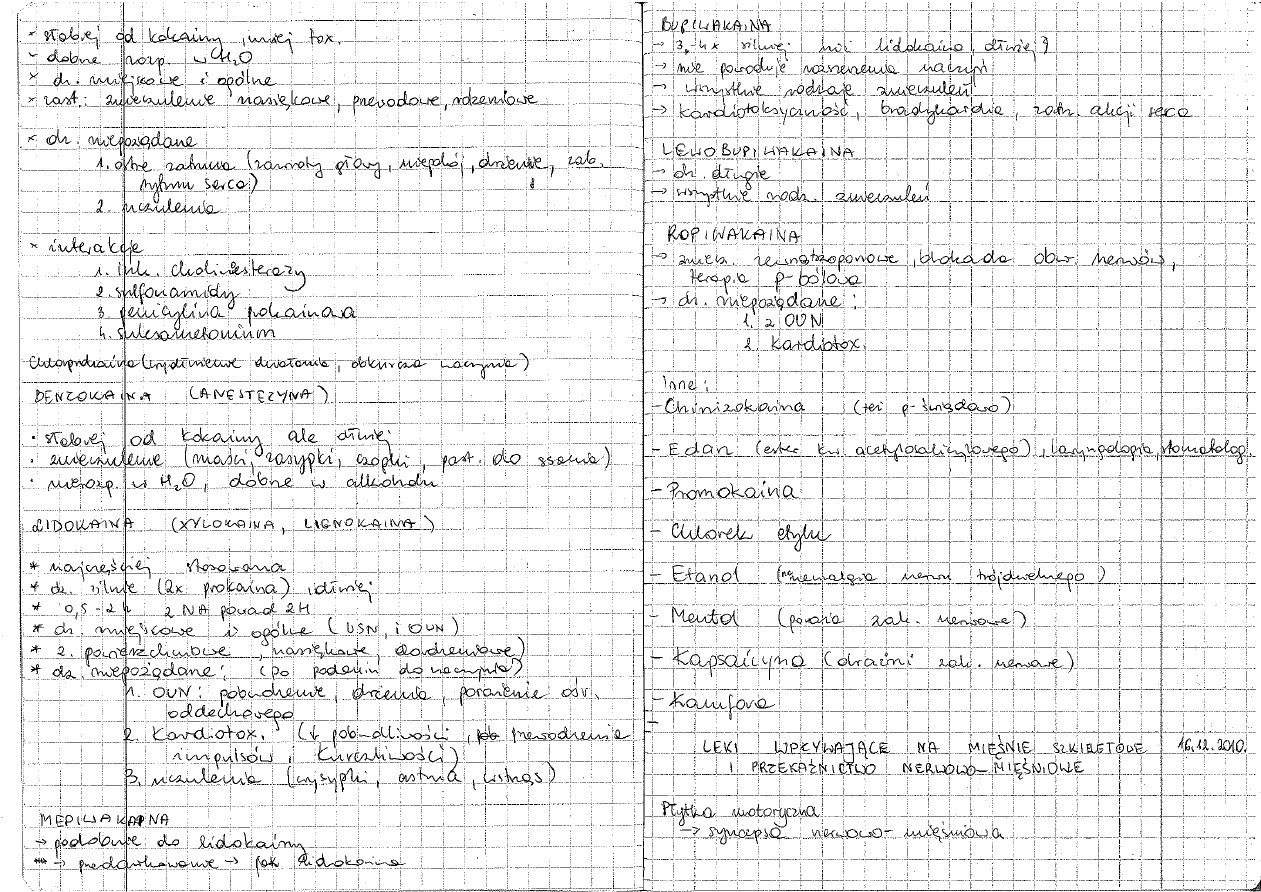 × słabiej od kokainy, mniej tox.
× dobrze rozp. w H2O
× dz. miejscowe i ogólne
× zast.: znieczulenie nasiękowe, przewodowe, rdzeniowe
× dz. niepożądane
1. ostre zatrucia (zawroty głowy, niepokój, drżenie, zab.
rytmu serca)
2. uczulenia
× interakcje
1. inh. cholinesterazy
2. sulfonamidy
3. penicylina prokainowa
4. suksametonium
Chloroprokaina (wydłużenie działania, obkurcza naczynia)
BENZOKAINA (ANESTEZYNA)
· słabiej od kokainy ale dłużej
· znieczulenie (maści, zasypki, czopki, past. do ssania)
· nierozp. w H2O, dobrze w alkoholu
LIDOKAINA (XYLOKAINA, LIGNOKAINA)
* najczęściej stosowana
* dz. silnie (2x prokaina) i dłużej
* 0,5 - 2h z NA ponad 2H
* dz. miejscowe i ogólne (USN, i OUN)
* z. powierzchniowe, nasiękowe
* dz. niepożądane: (po podaniu do naczynia)
1. OUN: pobudzenie, drżenia, porażenie ośr.
oddechowego
2. Kardiotox. (↓ pobudliwości, przewodzenia
impulsów i kurczliwości)
3. uczulenia (wysypki, astma, wstrząs)
MEPIWAKAINA
→ podobnie do lidokainy
→ przedawkowanie → jak lidokaina
BUPIWAKAINA
→ 3, 4x silniej niż lidokaina, dłużej
→ nie powoduje rozszerzenia naczyń
→ wszystkie rodzaje znieczuleń
→ kardiotoksyczność, bradykardia, zatrz. akcji serca
LEWOBUPIWAKAINA
→ dz. długie
→ wszystkie rodz. znieczuleń
ROPIWAKAINA
→ zniecz. zewnątrzoponowe, blokada obw. nerwów,
terapia p-bólowa
→ dz. niepożądane:
1. z OUN
2. Kardiotox.
Inne:
- Chinizokaina (też p-świądowo)
- Edan (ester kw. acetylosalicylowego), laryngologia, stomatolog.
- Promokaina
- Chlorek etylu
- Etanol (neuralgia nerwu trójdzielnego)
- Mentol (poraża zak. nerwowe)
- Kapsaicyna (drażni zak. nerwowe)
- Kamfora
LEKI WPŁYWAJĄCE NA MIĘŚNIE SZKIELETOWE 16.12.2010.
I PRZEKAŹNICTWO NERWOWO-MIĘŚNIOWE
Płytka motoryczna
→ synapsa nerwowo-mięśniowa